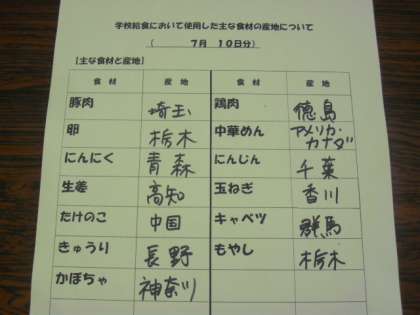 学校給食において使用した主な食材の産地について
( 7月 10日分)
【主な食材と産地】
食材 産地 食材 産地
豚肉 埼玉 鶏肉 徳島
卵 栃木 中華めん アメリカ・カナダ
にんにく 青森 にんじん 千葉
生姜 高知 玉ねぎ 香川
たけのこ 中国 キャベツ 群馬
きゅうり 長野 もやし 栃木
かぼちゃ 神奈川